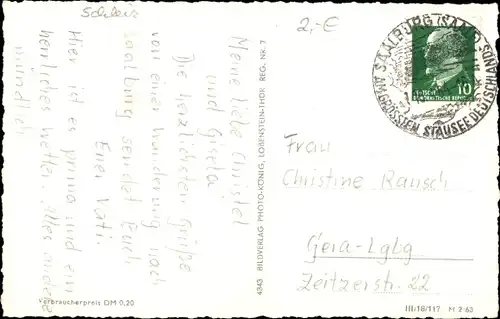 Schleiz
2,-€
Meine liebe Christel
und Gisela
Die herzlichsten Grüße
von einer Wanderung nach
Saalburg sendet Euch
Euer Vati.
Hier ist es prima und ein
herrliches Wetter. Alles andere
mündlich
Verbraucherpreis DM 0,20
4343 BILDVERLAG PHOTO-KÖNIG, LOBENSTEIN-THÜR. REG. NR. 7
SAALBURG (SAALE)
AM GRÖSSTEN STAUSEE DEUTSCHLANDS
DEUTSCHE
DEMOKRATISCHE REPUBLIK
10
Frau
Christine Rausch
Gera-Lglbg
Zeitzerstr. 22
III/18/117 M 2 63